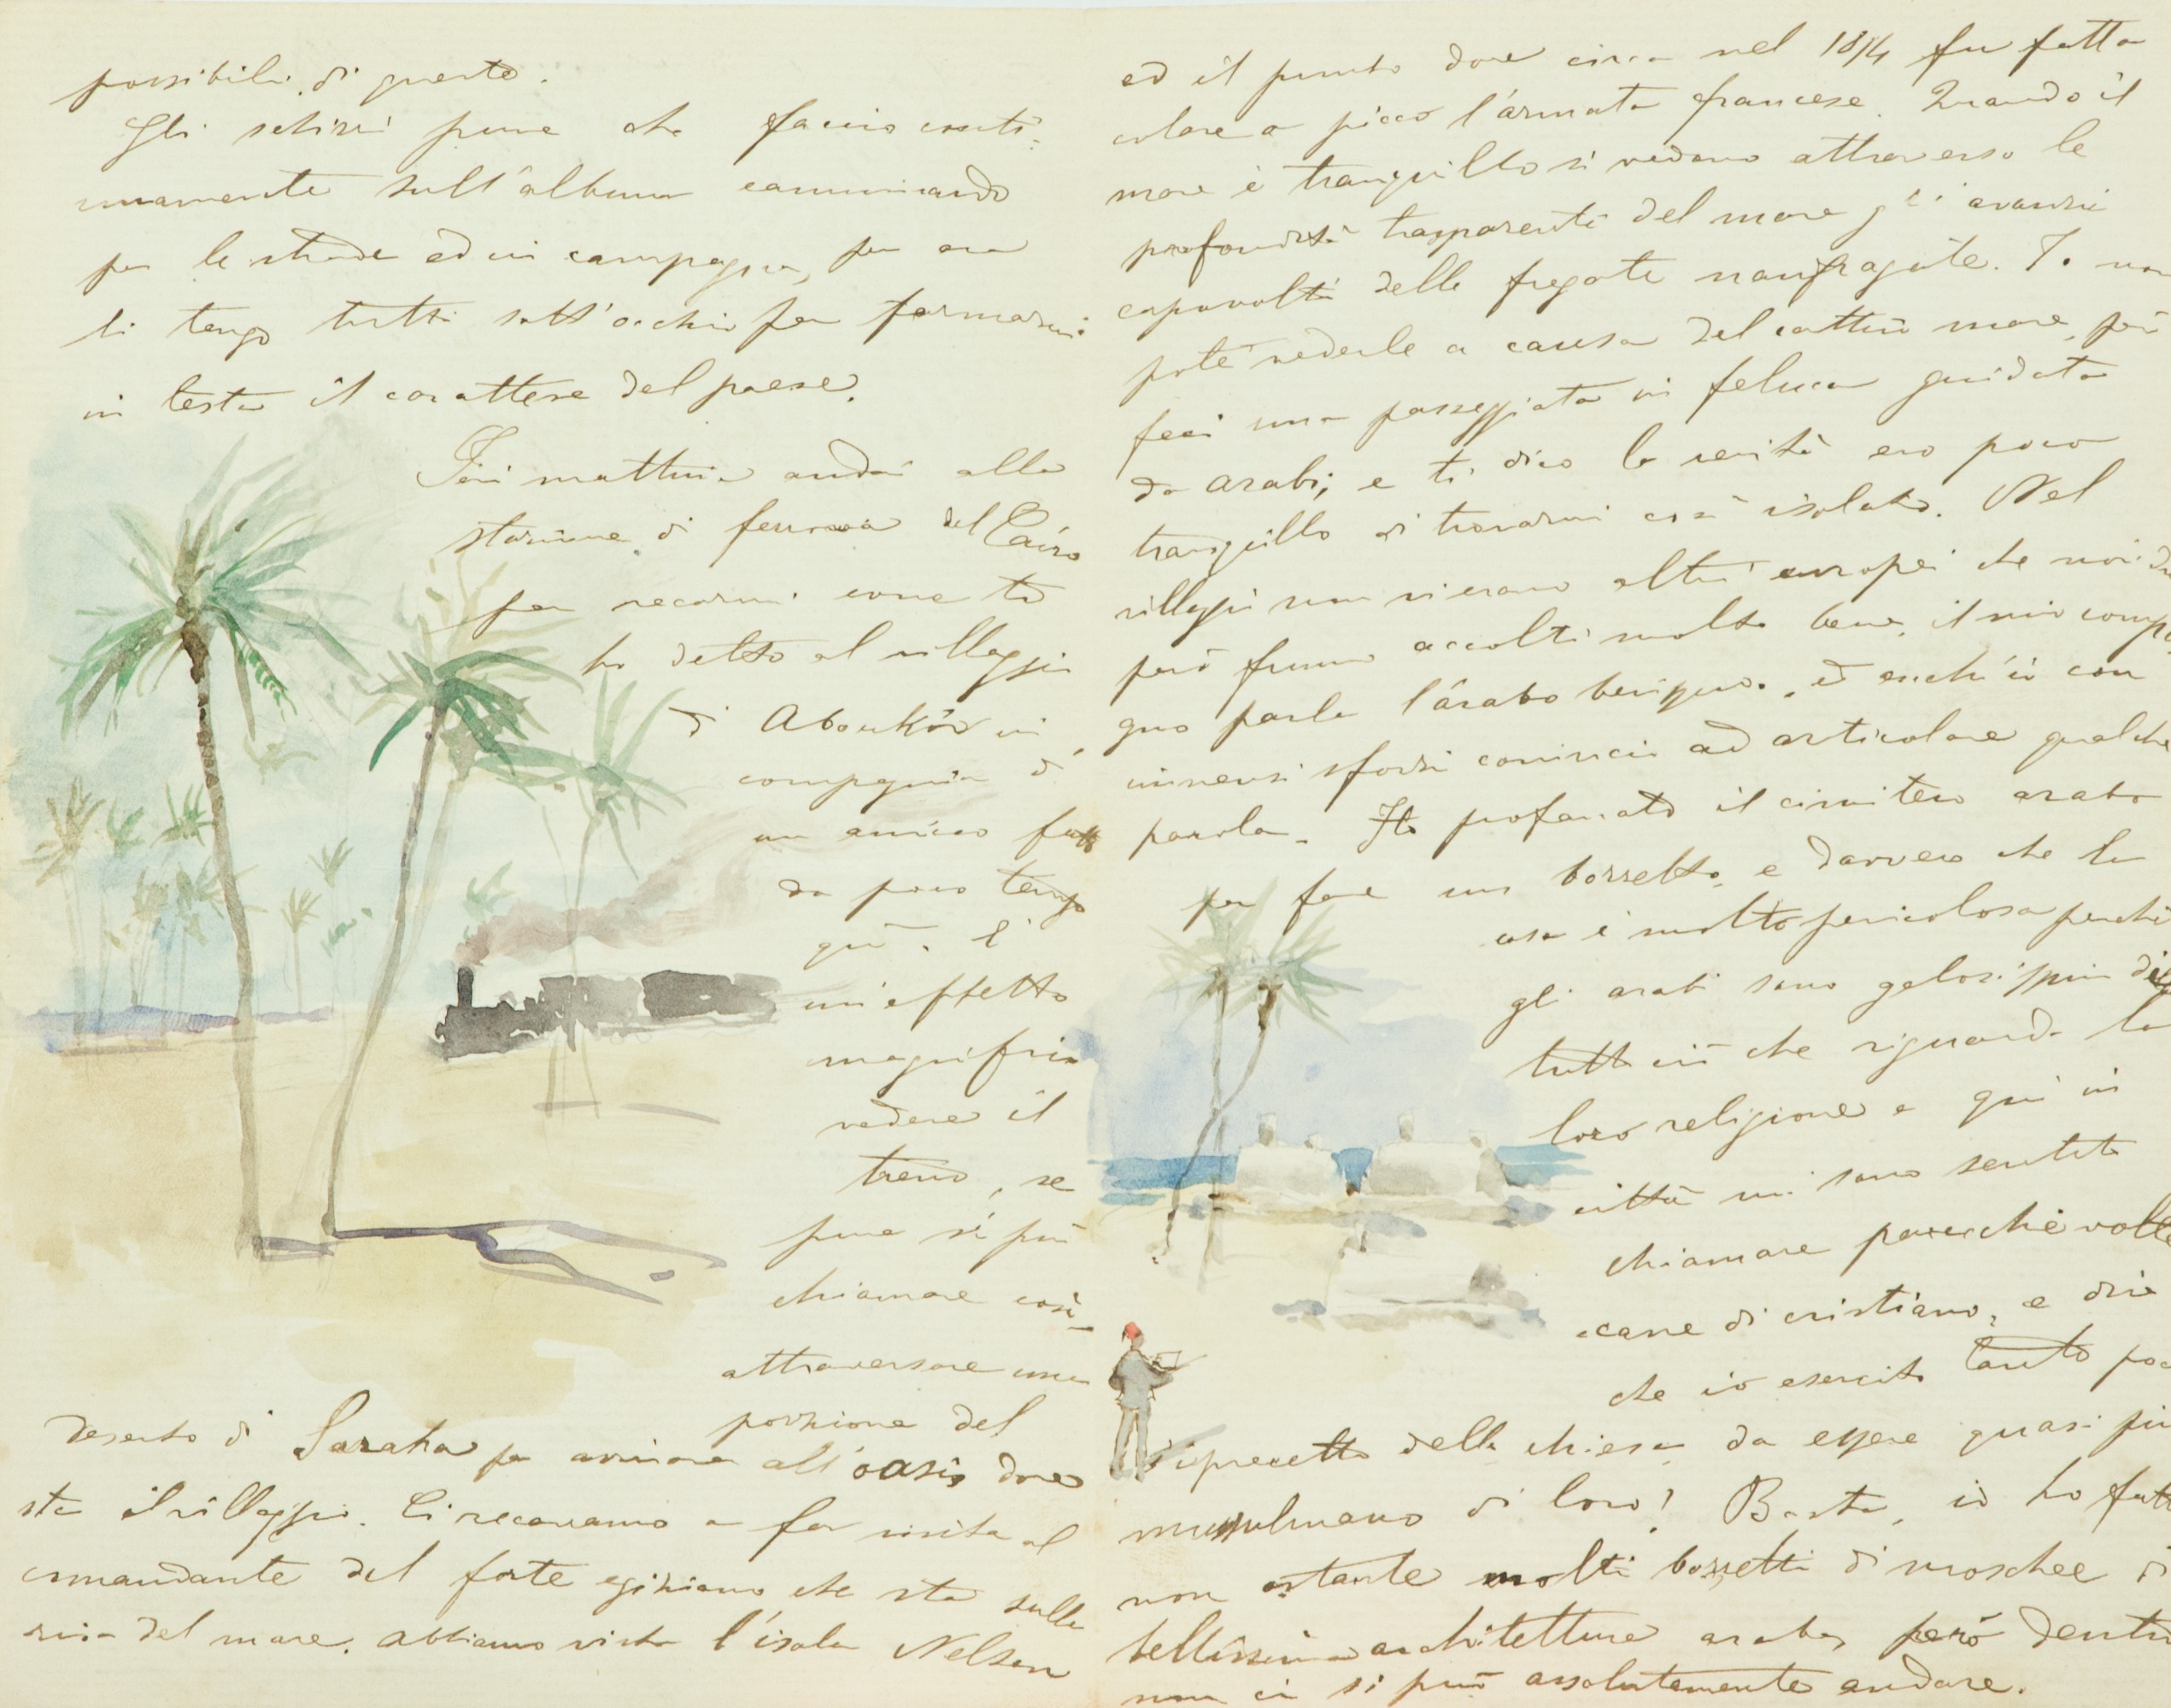 possibili di questo.
Gli schizzi pure che faccio conti-
nuamente sull'album camminando
per le strade ed in campagna, per ora
li tengo tutti sott'occhio per formarmi
in testa il carattere del paese.
Ieri mattina andai alla
stazione di ferrovia del Cairo
per recarmi come ti
ho detto al villaggio
di Aboukir in
compagnia di
un amico fatto
da poco tempo
qui. È
un'effetto
magnifico
vedere il
treno, se
pure si può
chiamare così-
attraversare una
porzione del
deserto di Saraha per arrivare all'oasis dove
sta il villaggio. Ci recavamo a far visita al
comandante del forte egiziano che sta sulla
riva del mare. Abbiamo visto l'isola Nelson
ed il punto dove circa nel 18 fu fatta
colare a picco l'armata francese. Quando il
mare è tranquillo si vedono attraverso le
profondità trasparenti del mare gli avanzi
capovolti delle fregate naufragate. Io non
potè vederle a causa del cattivo mare, però
feci una passeggiata in feluca guidata
da arabi; e ti dico la verità ero poco
tranquillo di trovarmi così isolato. Nel
villaggio non vi erano altri europei che noi due
però fummo accolti molto bene, il mio compa
gno parla l'arabo benissimo, ed anch'io con
immensi sforzi comincio ad articolare qualche
parola. Ho profanato il cimitero arabo
per fare un bozzetto, e davvero che la
cosa è molto pericolosa perchè
gli arabi sono gelosissimi di
tutto ciò che riguarda la
loro religione e qui in
città mi sono sentito
chiamare parecchie volte
cane di cristiano, e dire
che io esercito tanto poco
i precetti della chiesa da essere quasi più
mussulmano di loro! Basta, io ho fatto
non ostante molti bozzetti di moschee di
bellissima architettura araba, però dentro
non ci si può assolutamente andare.